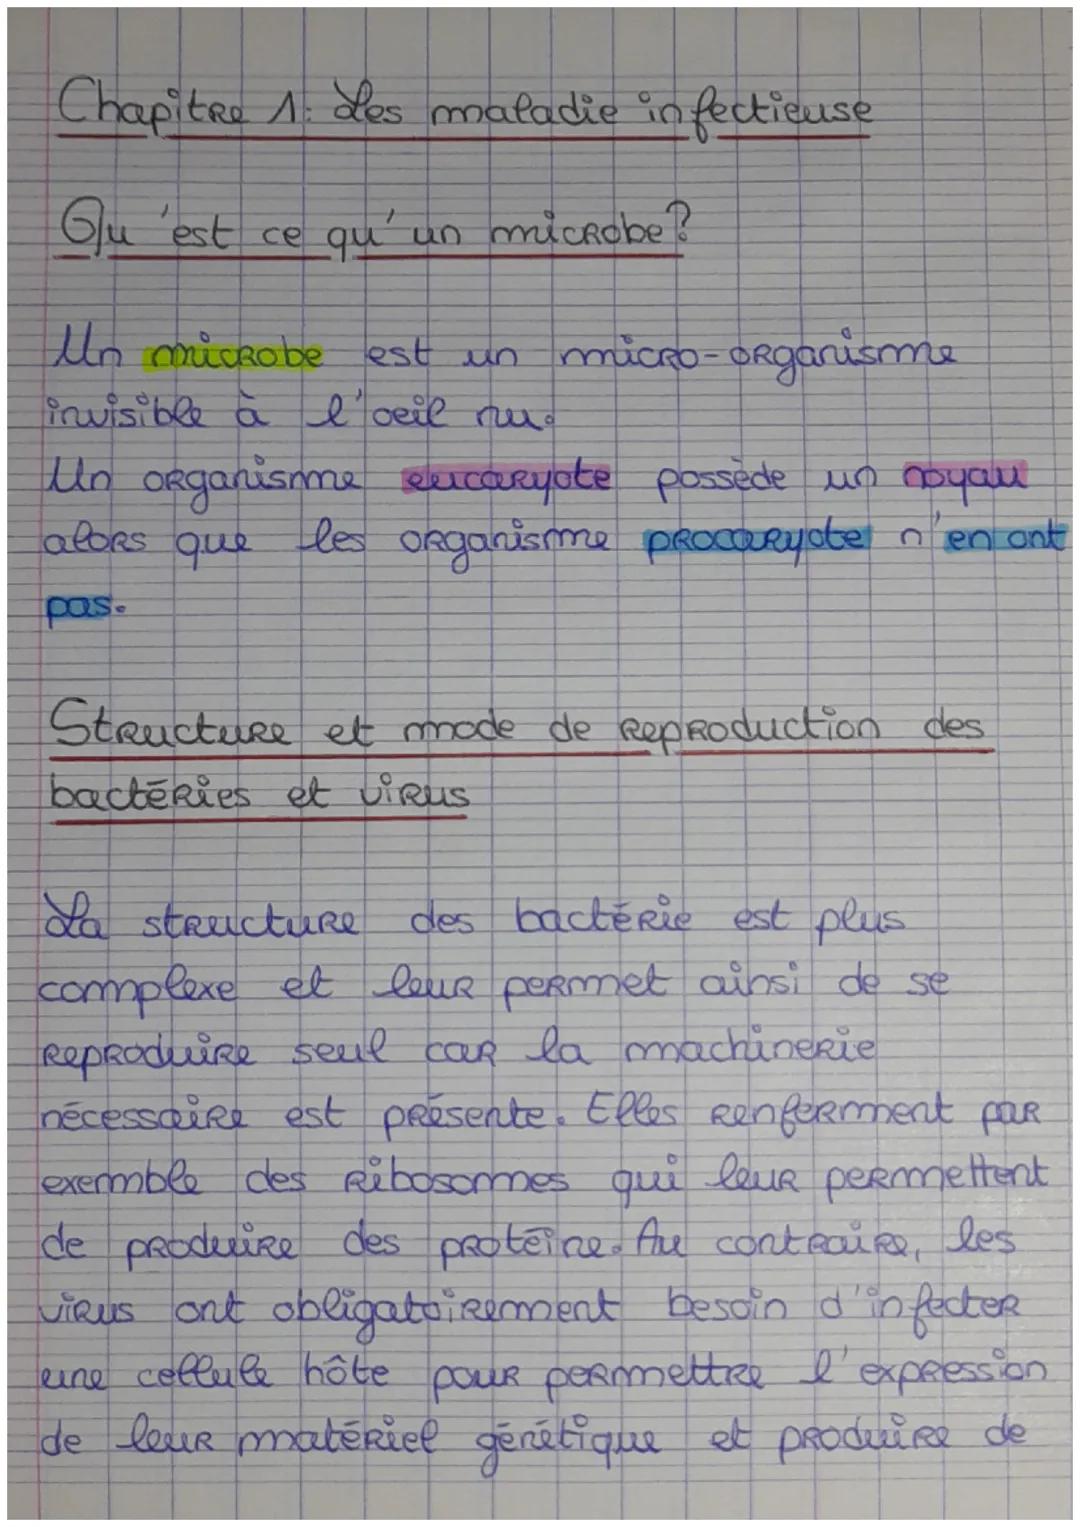 Chapitre 1: Les maladie infectieuse
Qu'est ce qu'un microbe?
Un microbe est un micro-organisme
invisible à l'oeil nu.
Un organisme eucaryote possède un noyau
alors que les organisme procaryote n'en ont
pas.
Structure et mode de reproduction des
bactéries et virus
La structure des bactérie est plus
complexe et leur permet ainsi de se
reproduire seul car la machinerie
nécessaire est présente. Elles renferment par
exemble des ribosomes qui leur permettent
de produire des protéine. Au contraire, les
virus ont obligatoirement besoin d'infecter
une cellule hôte pour permettre l'expression
de leur matériel génétique et produire de